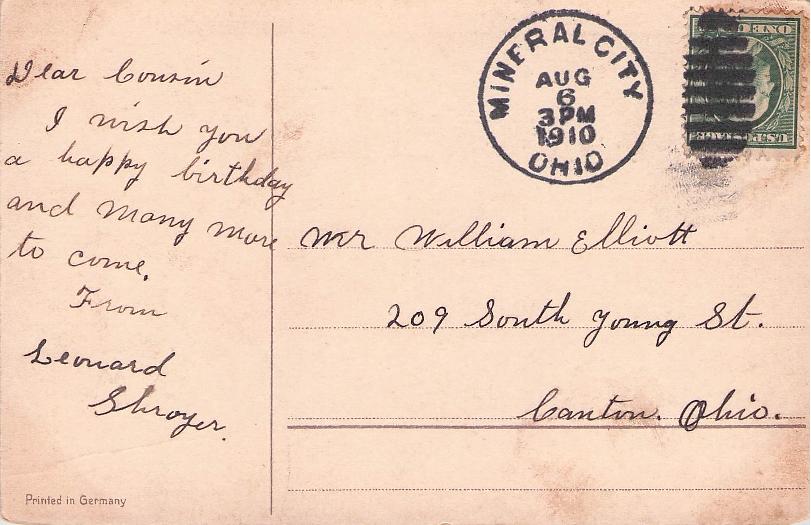 Dear Cousin
I wish you
a happy birthday
and many more
to come.
From
Leonard
Shroyer.
Printed in Germany
MINERAL CITY
AUG
6
3 PM
1910
OHIO
Mr William Elliott
209 South Young St.
Canton. Ohio.